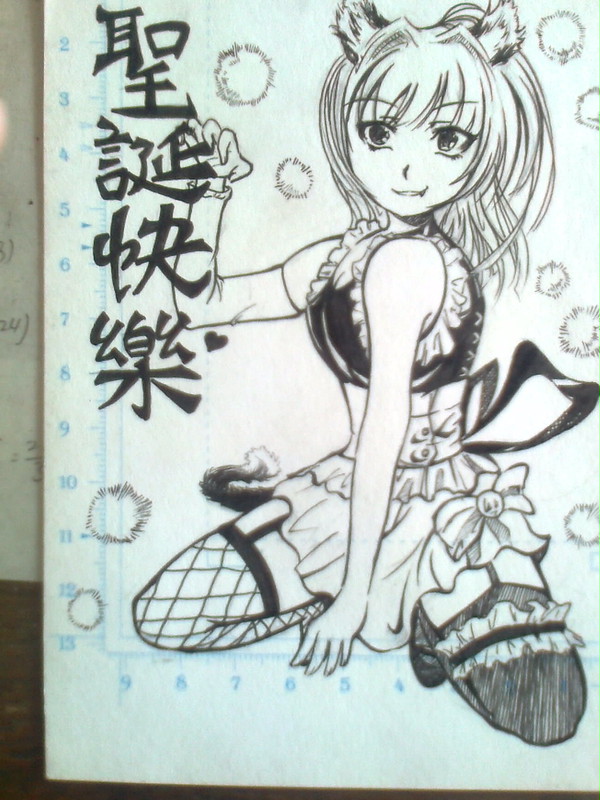 聖誕快樂
2
3
4
5
6
7
8
9
10
11
12
13
9 8 7 6 5 4